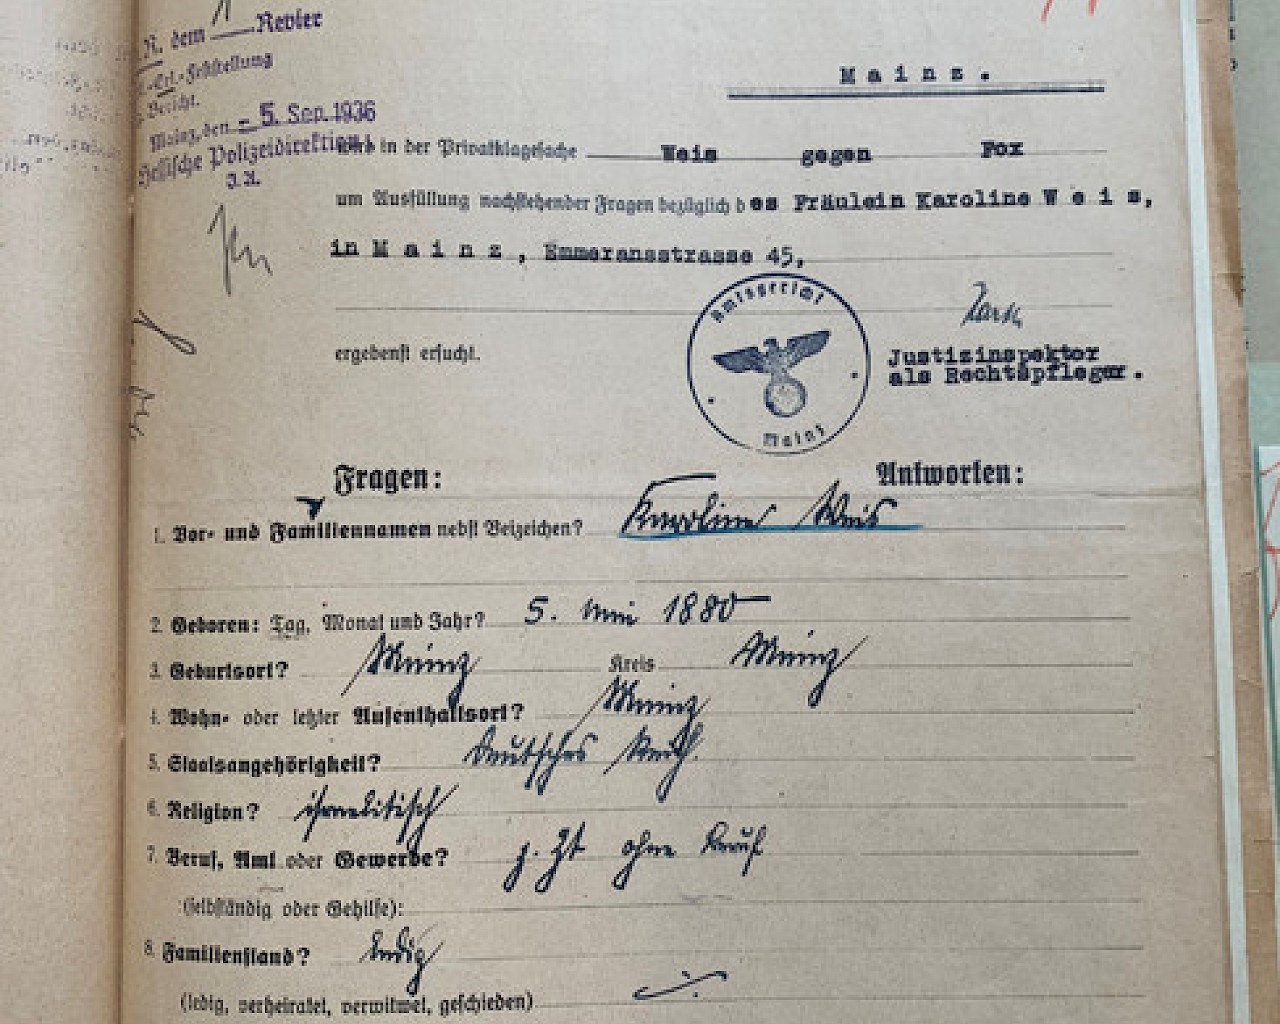 R. dem 1 Revier
-Erl.-Feststellung
Bericht.
Mainz, den - 5. Sep. 1936
Hessische Polizeidirektion
J. A.
Mainz.
wird in der Privatklagesache Weis gegen Fox
um Ausfüllung nachstehender Fragen bezüglich des Fräulein Karoline Weis,
in Mainz, Emmeransstrasse 45,
Amtsgericht
Mainz
ergebenst ersucht.
Justizinspektor
als Rechtspfleger.
Fragen: Antworten:
1. Vor- und Familiennamen nebst Beizeichen? Karoline Weis
2. Geboren: Tag, Monat und Jahr? 5. Mai 1880
3. Geburtsort? Mainz Kreis Mainz
4. Wohn- oder letzter Aufenthaltsort? Mainz
5. Staatsangehörigkeit? Deutsches Reich.
6. Religion? israelitisch
7. Beruf, Amt oder Gewerbe? z. Zt ohne Beruf
(selbständig oder Gehilfe):
8. Familienstand? ledig
(ledig, verheiratet, verwitwet, geschieden)